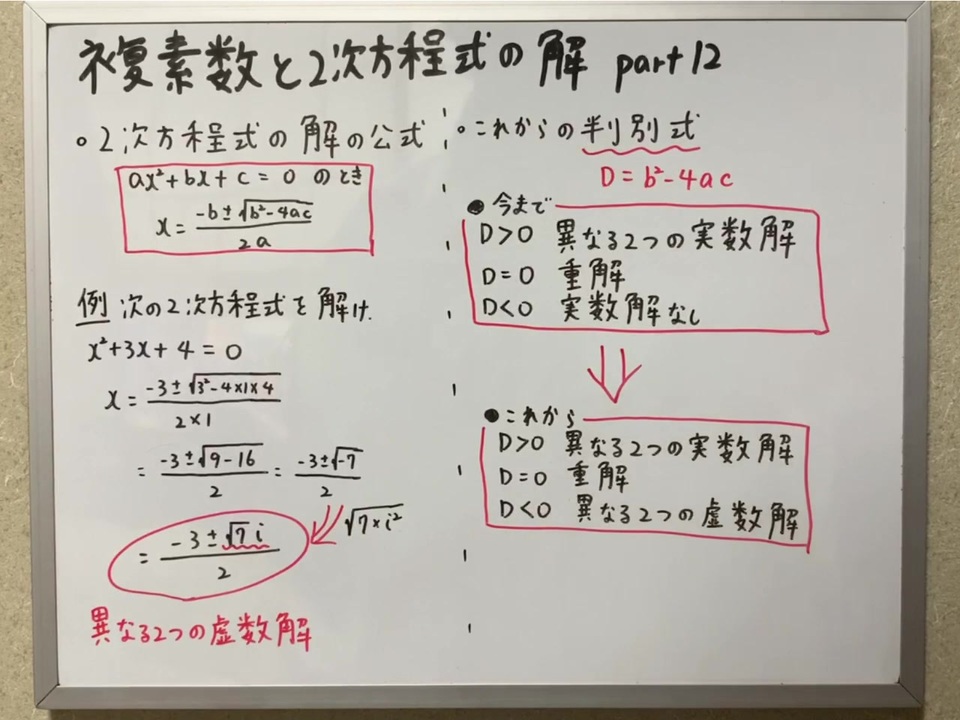 複素数と2次方程式の解 part12
○2次方程式の解の公式
ax²+bx+c=0 のとき
x=(-b±√(b²-4ac))/2a
例 次の2次方程式を解け.
x²+3x+4=0
x=(-3±√(3²-4×1×4))/(2×1)
=(-3±√(9-16))/2=(-3±√-7)/2
√(7×i²)
=(-3±√7 i)/2
異なる2つの虚数解
○これからの判別式
D=b²-4ac
●今まで
D>0 異なる2つの実数解
D=0 重解
D<0 実数解なし
●これから
D>0 異なる2つの実数解
D=0 重解
D<0 異なる2つの虚数解